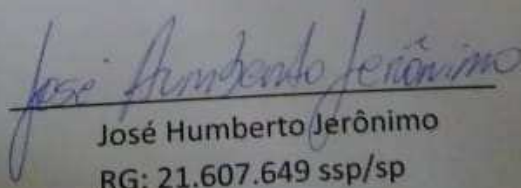 José Humberto Jerônimo
José Humberto Jerônimo
RG: 21.607.649 ssp/sp